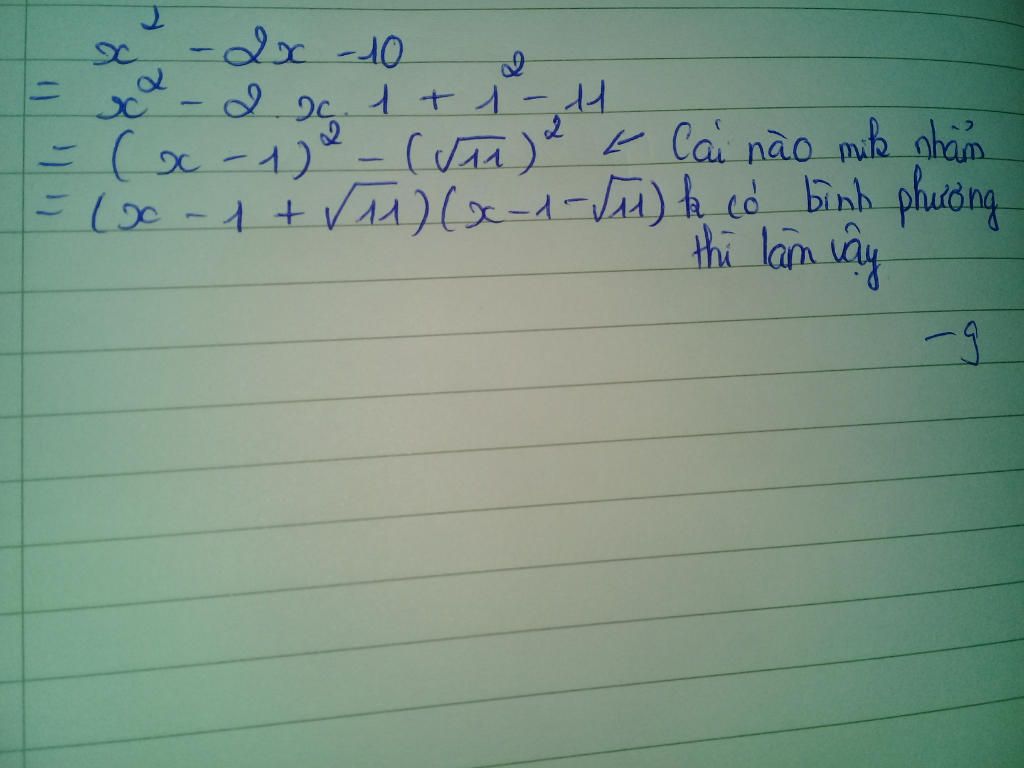 x² - 2x - 10
= x² - 2.x.1 + 1² - 11
= (x - 1)² - (√11)² ← Cái nào mik nhẩm
= (x - 1 + √11)(x - 1 - √11) k có bình phương
thì làm vậy
- g